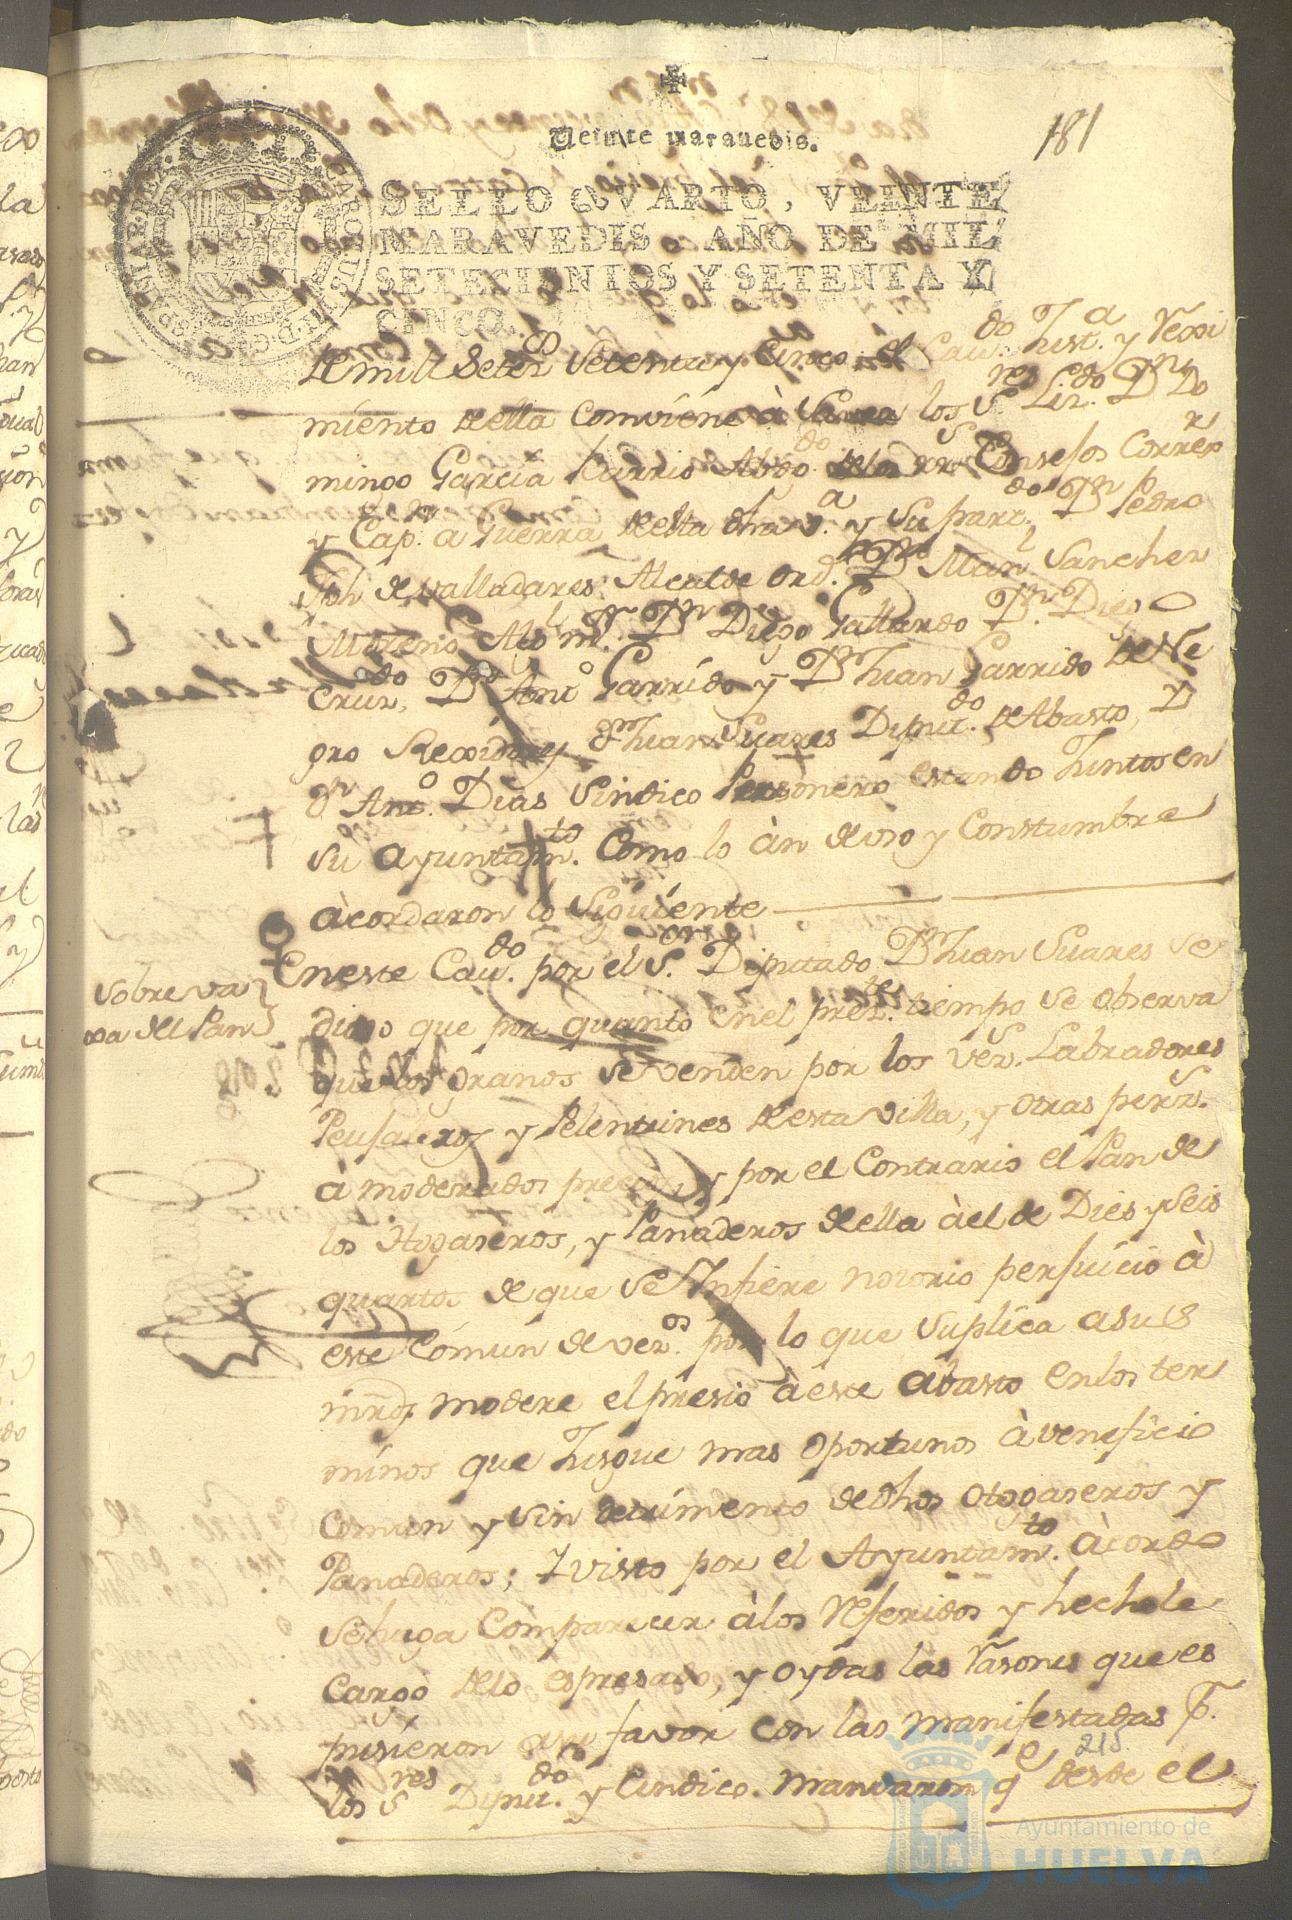 181
Veinte maravedis.
SELLO QVARTO, VEINTE
MARAVEDIS, AÑO DE MIL
SETECIENTOS Y SETENTA Y
CINCO.
CAROLUS III D. G. HISPANIAR. REX
de mill Setec.os Setenta y Cinco, el Cav.do Just.a y Regi
miento della Combiene à Saver los S.res Liz.do D.n Do
mingo Garcia Barrio Abdo. de los R.s Consejos Correx.r
y Cap.n a Guerra desta dha v.a y su part.do D.n Pedro
Jph de Valladares Alcalde ord.o D.n Man.l Sanchez
Moreno D.n Diego Gallardo D.n Diego
Cruz, D.n Ant.o Garrido y D.n Juan Garrido de Ne
gro Rexidores D.n Juan Suares Diput.do de Abasto, y
D.n Ant.o Dias Sindico Personero estando Juntos en
su ayuntam.to Como lo àn de uso y Constumbre
àcordaron lo Siguiente
Sobre va
xa del Pan
En este Cav.do por el S.or Diputado D.n Juan Suares se
dixo que por quanto en el prez.te tiempo se observa
que los granos se venden por los vez.s Labradores
Peujaleros y Pelentrines de esta villa, y otras perz.s
à moderados precios, y por el Contrario el Pan de
los Otogaseros, y Panaderos della àel de Dies y seis
quartos de que se Infiere notorio perjuicio à
este Cómun de vez.os por lo que suplica a su S
mrd. modere el presio à este abasto en los ter
minos que Jusgue mas oportunos à veneficio
Comun y sin detrimento de dhos Otogaseros y
Panaderos; Y visto por el Ayuntam.to àcordo
se haga Comparecer àlos Referidos y hechole
Cargo delo espresado, y oydas las Rasones que es
pusieron a su favor con las manifestadas p.r
los S.res Diput.do y Sindico. Mandaron q.e desde el
215
Ayuntamiento de
HUELVA